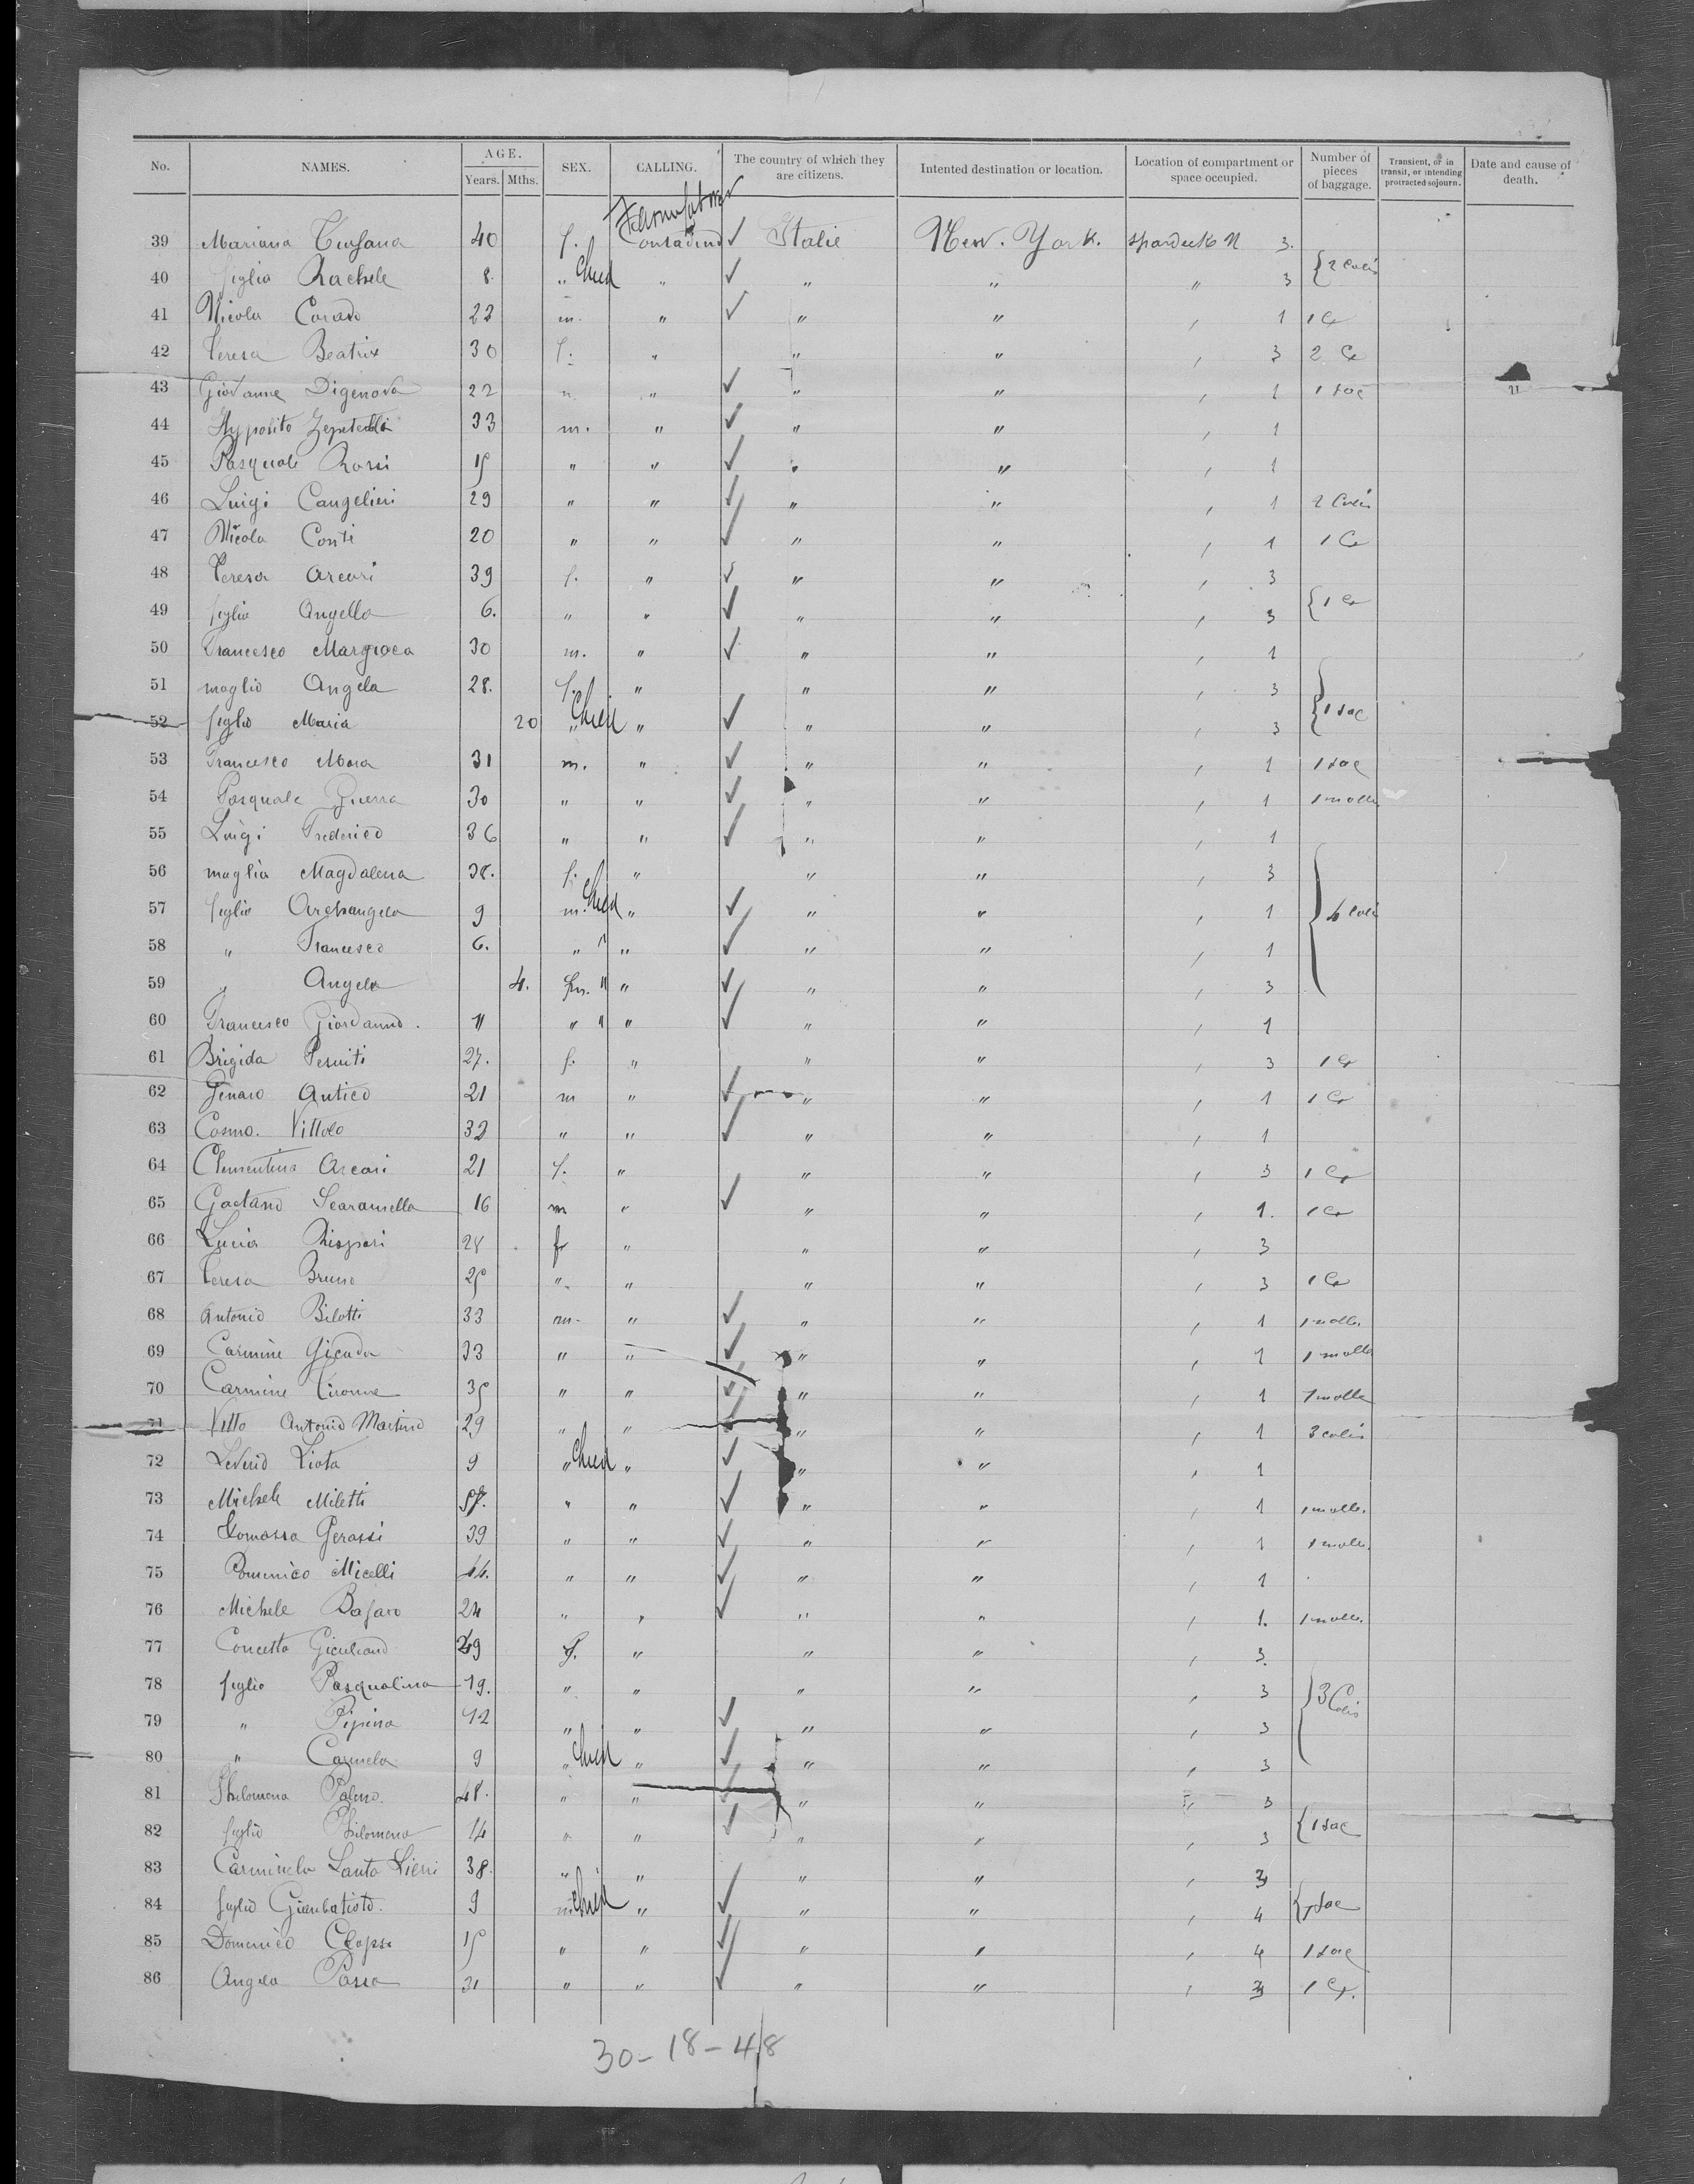 No. NAMES. AGE. Years. Mths. SEX. CALLING. The country of which they are citizens. Intented destination or location. Location of compartment or space occupied. Number of pieces of baggage. Transient, or in transit, or intending protracted sojourn. Date and cause of death.
39 Mariana 40 f. Contadino ✓ Italie New. York. 3.
40 figlia Rachele 8. " Child " ✓ " " " 3 { 2 Colis
41 Nicola Corado 22 m. " ✓ " " , 1 1 Co
42 Teresa Beatrix 30 f. " " " , 3 2 Co
43 Giovanne Digenova 22 m " ✓ " " , 1 1 sac
44 Hyposito 33 m. " ✓ " " , 1
45 Pasquale Rossi 15 " " ✓ " " , 1
46 Luigi Cangelieri 29 " " ✓ " " , 1 2 Colis
47 Nicola Conti 20 " " ✓ " " , 1 1 Co
48 Teresa Arcari 39 f. " ✓ " " , 3
49 figlia Angella 6. " " ✓ " " , 3 { 1 Co
50 Francesco Margioca 30 m. " ✓ " " , 1
51 moglio Angela 28. f. " " " , 3
52 figlio Maria 20 " Child " ✓ " " , 3 { 1 sac
53 Francesco Mora 31 m. " ✓ " " , 1 1 sac
54 Pasquale Guerra 30 " " ✓ " " , 1 1 malle
55 Luigi Frederico 36 " " ✓ " " , 1
56 moglia Magdalena 38. f. " " " , 3
57 figlio Archangelo 9 m. Child " ✓ " " , 1 } 4 Colis
58 " Francesco 6. " " " ✓ " " , 1
59 " Angelo 4. m. " " ✓ " " , 3
60 Francesco Giordanno. 11 " " " ✓ " " , 1
61 Brigida 27. f. " " " , 3 1 Co
62 Genaro Antico 21 m " ✓ " " , 1 1 Co
63 Cosmo. Vittolo 32 " " ✓ " " , 1
64 Clementina Arcari 21 f. " " " , 3 1 Co
65 Gaetano Scaramella 16 m " ✓ " " , 1. 1 Co
66 Lucia Rispari 28 f " " " , 3
67 Teresa Bruno 25 " " " " , 3 1 Co
68 Antonio Bilotti 33 m. " ✓ " " , 1 1 malle.
69 Carmine Gicada 33 " " ✓ " " , 1 1 malle
70 Carmine Tironne 35 " " ✓ " " , 1 1 malle
71 Vitto Antonio Martino 29 " " ✓ " " , 1 3 colis
72 Liota 9 " Child " ✓ " " , 1
73 Michele Miletti 57. " " ✓ " " , 1 1 malle.
74 Tomasso Gerassi 39 " " ✓ " " , 1 1 malle.
75 Domenico Micelli 44. " " ✓ " " , 1
76 Michele Bafaro 24 " " ✓ " " , 1. 1 malle.
77 Concetta Giculiano 49 f. " " " , 3.
78 figlio Pasqualina 19. " " " " , 3 } 3 Colis
79 " Pipina 12 " " ✓ " " , 3
80 " Carmela 9 " Child " ✓ " " , 3
81 Philomena Palmo. 48. " " ✓ " " , 3
82 figlio Philomena 14 " " ✓ " " , 3 { 1 sac
83 Carminela Santo Lieri 38. " " " " , 3
84 figlio Gianbatisto. 9 m Child " ✓ " " , 4 { 1 sac
85 Domenico 15 " " ✓ " " , 4 1 sac
86 Angela Passa 31 " " ✓ " " , 3 1 Co.
30 - 18 - 48